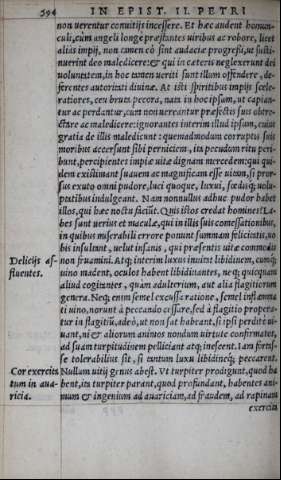 594 IN EPIST. II. PETRI
non uerentur conuitijs incessere. Et hæc audent homun-
culi, cum angeli longe præstantes uiribus ac robore, licet
aliis impij, non tamen eò sint audaciæ progressi, ut susti-
nuerint deo maledicere: & qui in cæteris neglexerunt dei
uoluntatem, in hoc tamen ueriti sunt illum offendere, de-
ferentes autoritati diuinæ. At isti spiritibus impijs scele-
ratiores, ceu bruta pecora, nata in hoc ipsum, ut capian-
tur ac perdantur, cum non uereantur præfectis suis obtre-
ctare ac maledicere: ignorantes interim illud ipsum, cuius
gratia de illis maledicunt: quemadmodum corruptis suis
moribus accersunt sibi perniciem, ita pecudum ritu peri-
bunt, percipientes impiæ uitæ dignam mercedem: qui qui-
dem existimant suauem ac magnificam esse uitam, si pror-
sus exuto omni pudore, luci quoque, luxui, fœdisq; uolu-
ptatibus indulgeant. Nam nonnullus adhuc pudor habet
illos, qui hæc noctu faciūt. Quis istos credat homines? La-
bes sunt uerius et maculæ, qui in illis suis comessationibus,
in quibus miserabili errore ponunt summam felicitatē, uo-
bis insultent, uelut insanis, qui præsentis uitæ commodis
Delicijs af- non fruamini. Atq; interim luxus inuitat libidinem, cumq;
fluentes. uino madent, oculos habent libidinantes, neq; quicquam
aliud cogitantes, quàm adulterium, aut alia flagitiorum
genera. Neq; enim semel excussa ratione, semel inflamma
ti uino, norunt à peccando cessare, sed à flagitio propera-
tur in flagitiū, adeò, ut non sat habeant, si ipsi perditè ui-
uant, ni & aliorum animos nondum uirtute confirmatos,
ad suam turpitudinem pelliciant atq; inescent. Iam fortas-
se tolerabilius sit, si tantum luxu libidineq; peccarent.
Cor exercita Nullum uitij genus abest. Vt turpiter prodigunt, quod ha
tum in aua- bent, ita turpiter parant, quod profundant, habentes ani-
ricia. mum & ingenium ad auariciam, ad fraudem, ad rapinam
exercita